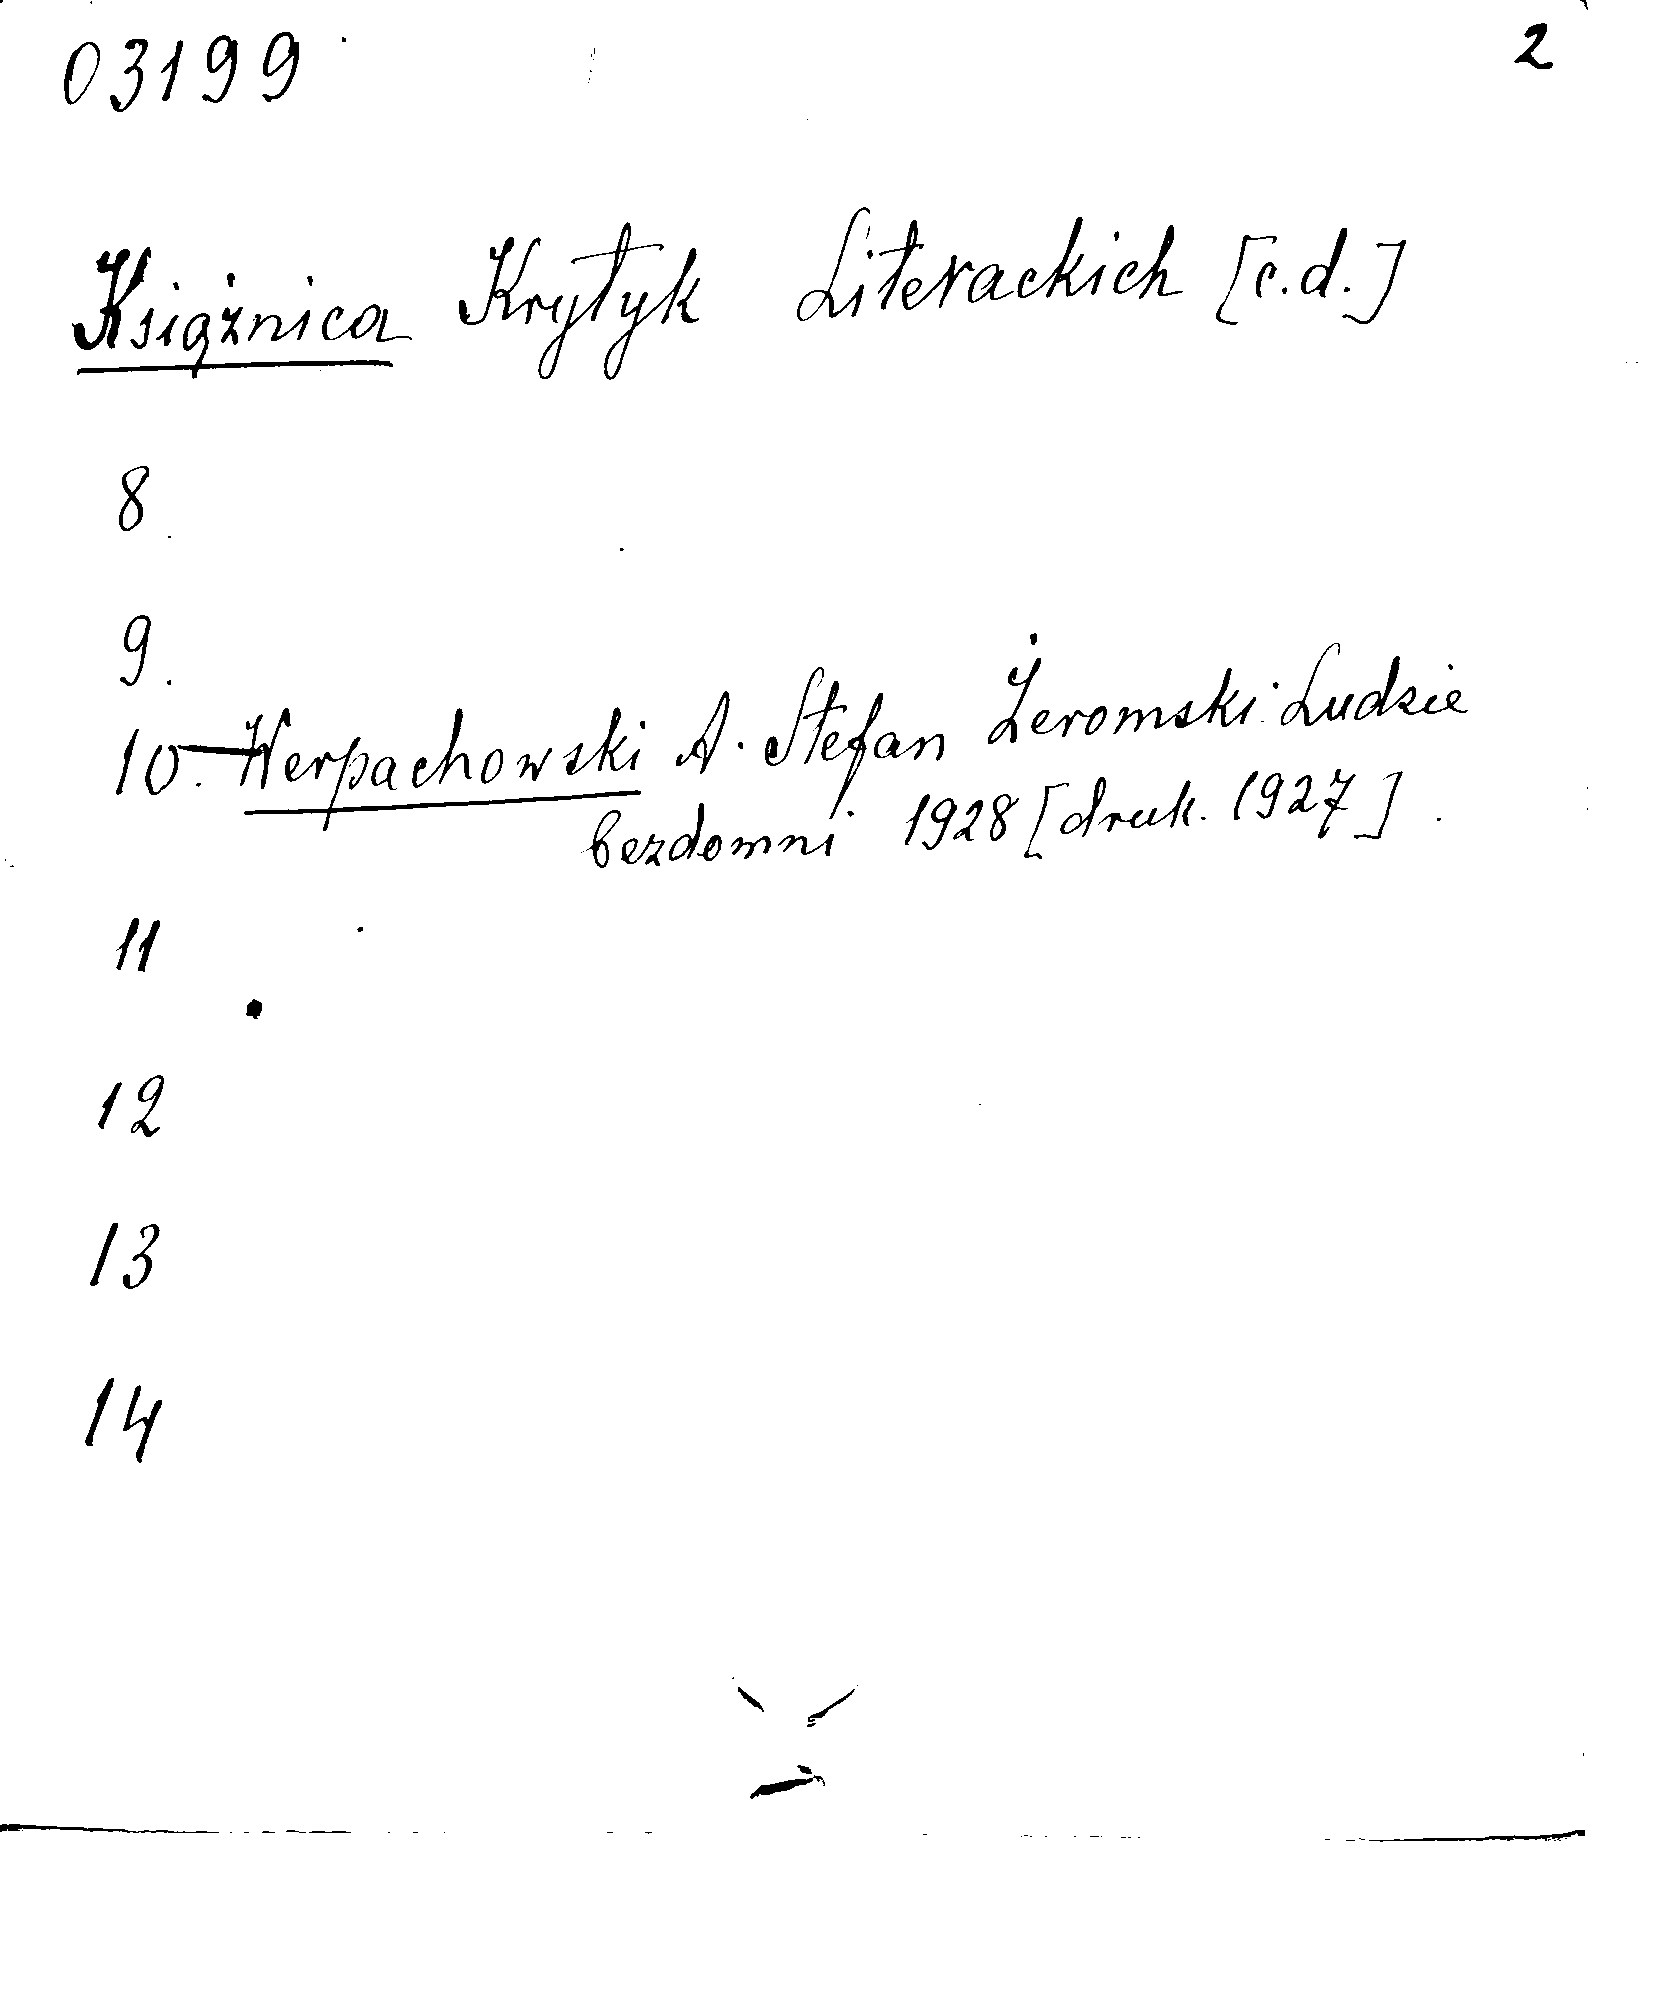 03199
2
Książnica Krytyk Literackich [c.d.]
8
9.
10. Werpachowski A. Stefan Żeromski: Ludzie
bezdomni 1928 [druk. 1927]
11
12
13
14